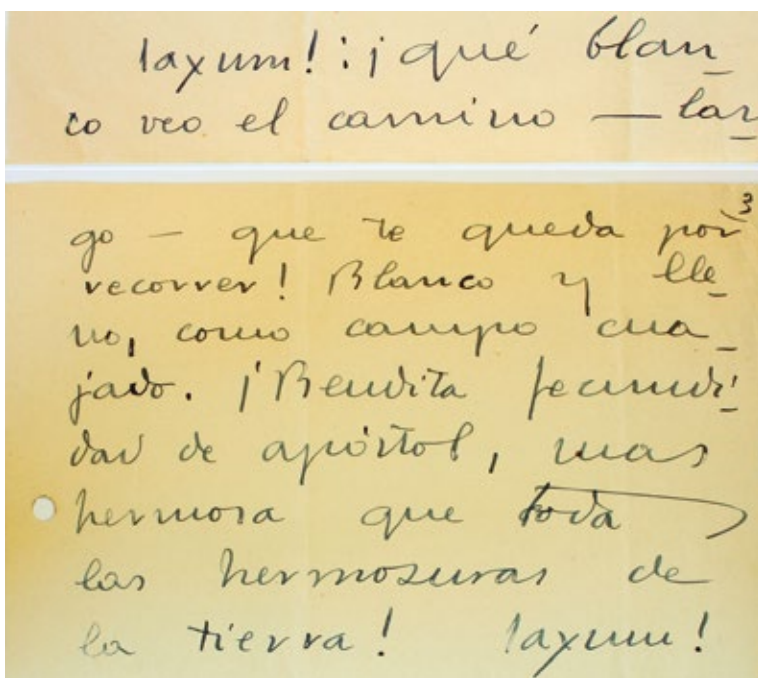 saxum!: ¡qué blan_
co veo el camino — lar_
3
go — que te queda por
recorrer! Blanco y lle_
no, como campo cua_
jado. ¡Bendita fecundi_
dad de apóstol, mas
hermosa que toda
las hermosuras de
la tierra! saxum!